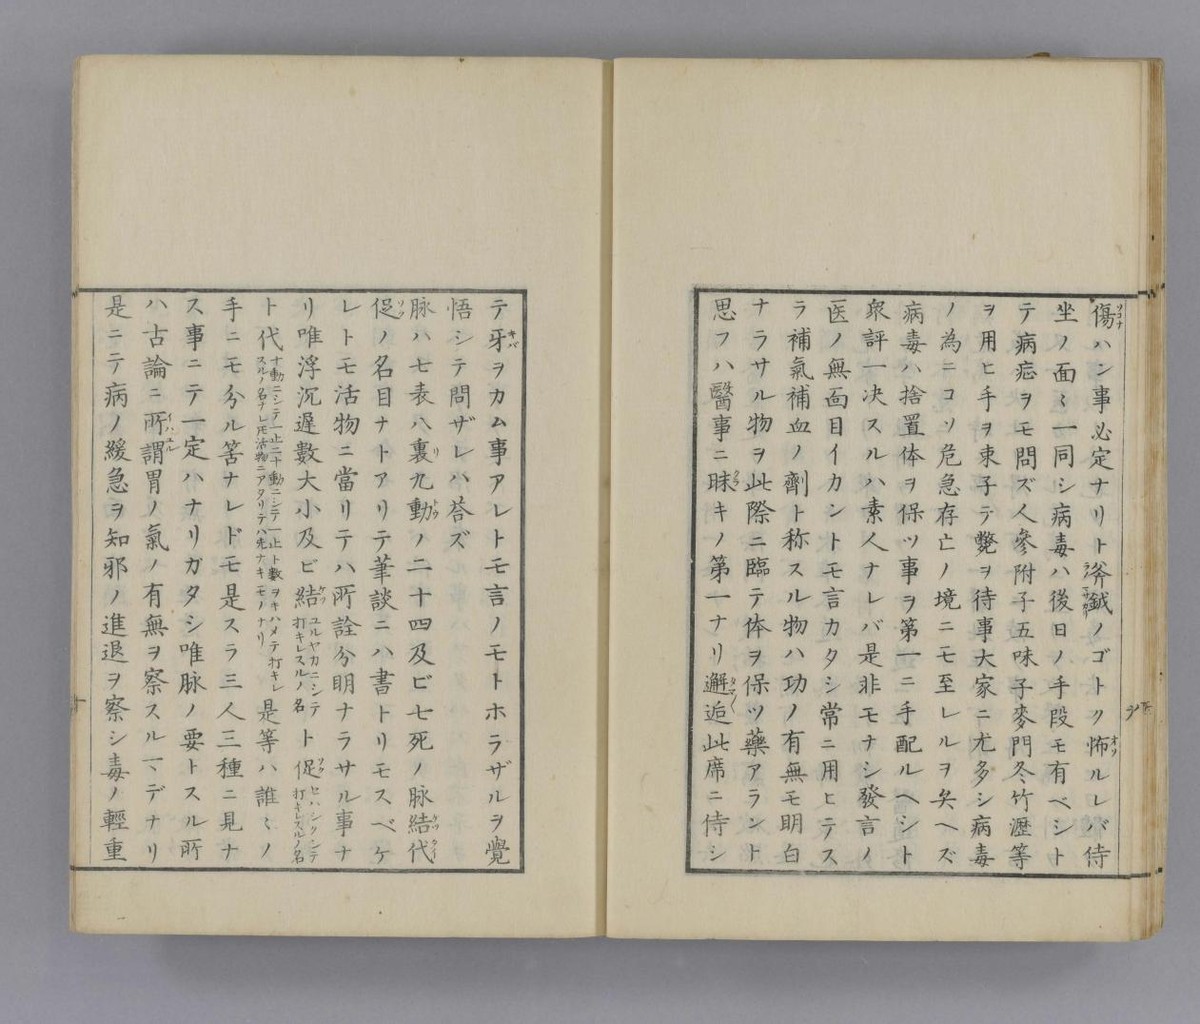 傷ハン事必定ナリト斧鉞ノゴトク怖ルレバ侍
坐ノ面〻一同シ病毒ハ後日ノ手段モ有ベシト
テ病症ヲモ問ズ人參附子五味子麥門冬竹瀝等
ヲ用ヒ手ヲ束子テ斃ヲ待事大家ニ尤多シ病毒
ノ為ニコソ危急存亡ノ境ニモ至レルヲ矣ヘズ
病毒ハ捨置体ヲ保ツ事ヲ第一ニ手配ルヘシト
衆評一决スルハ素人ナレバ是非モナシ發言ノ
医ノ無面目イカントモ言カタシ常ニ用ヒテス
ラ補氣補血ノ劑ト称スル物ハ功ノ有無モ明白
ナラサル物ヲ此際ニ臨テ体ヲ保ツ藥アラント
思フハ醫事ニ昧キノ第一ナリ邂逅此席ニ侍シ
テ牙ヲカム事アレトモ言ノモトホラザルヲ覺
悟シテ問ザレバ荅ズ
脉ハ七表八裏九動ノ二十四及ビ七死ノ脉結代
促ノ名目ナトアリテ筆談ニハ書トリモスベケ
レトモ活物ニ當リテハ所詮分明ナラサル事ナ
リ唯浮沉遲數大小及ビ結ユルヤカニシテ打キレスルノ名ト促セハシクシテ打キレスルノ名
ト代十動ニシテ一止二十動ニシテ一止ト數ヲキハメテ打キレスルノ名ナレ𪜈活物ニアタリテハ先ナキモノナリ是等ハ誰〻ノ
手ニモ分ル筈ナレドモ是スラ三人三種ニ見ナ
ス事ニテ一定ハナリガタシ唯脉ノ要トスル所
ハ古論ニ所謂胃ノ氣ノ有無ヲ察スル一ヽデナリ
是ニテ病ノ緩急ヲ知邪ノ進退ヲ察シ毒ノ輕重